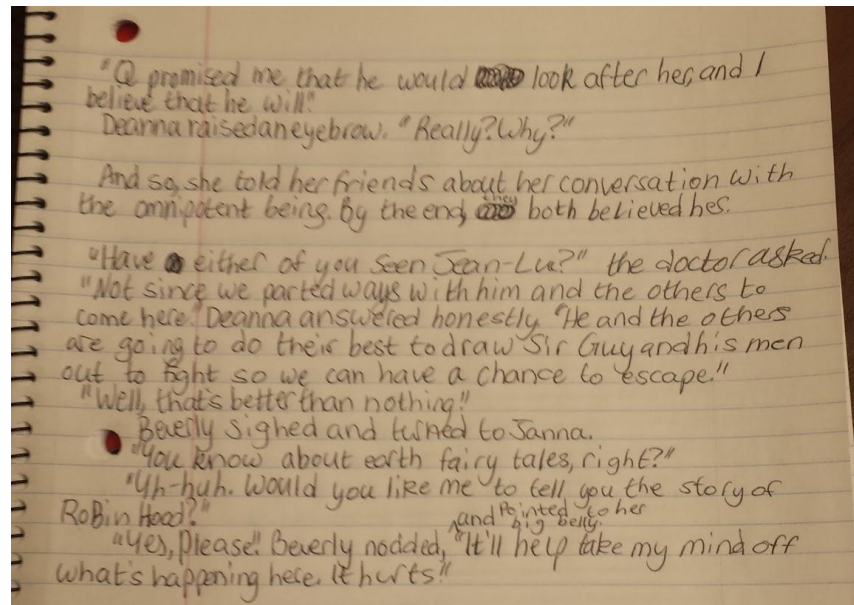 "Q promised me that he would look after her, and I
believe that he will."
Deanna raised an eyebrow. "Really? Why?"
And so, she told her friends about her conversation with
the omnipotent being. By the end, they both believed her.
"Have either of you seen Jean-Luc?" the doctor asked.
"Not since we parted ways with him and the others to
come here." Deanna answered honestly "He and the others
are going to do their best to draw Sir Guy and his men
out to fight so we can have a chance to escape."
"Well, that's better than nothing!"
Beverly sighed and turned to Janna.
"You know about earth fairy tales, right?"
"Uh-huh. Would you like me to tell you the story of
Robin Hood?"
"Yes, please!" Beverly nodded, and pointed to her big belly. "It'll help take my mind off
what's happening here. It hurts!"